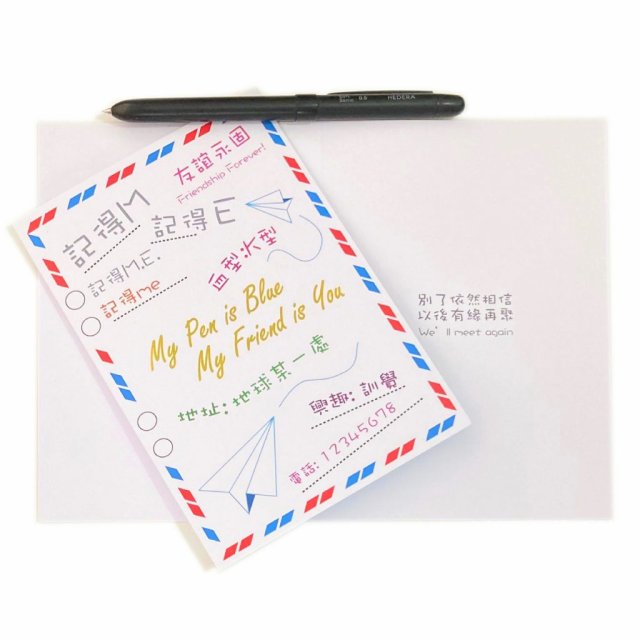 HEDERA
0.5
友誼永固
Friendship Forever!
記得M
記得E
記得M.E.
記得me
血型:大型
My Pen is Blue
My Friend is You
地址:地球某一處
興趣:訓覺
電話:12345678
別了依然相信
以後有緣再聚
We'll meet again